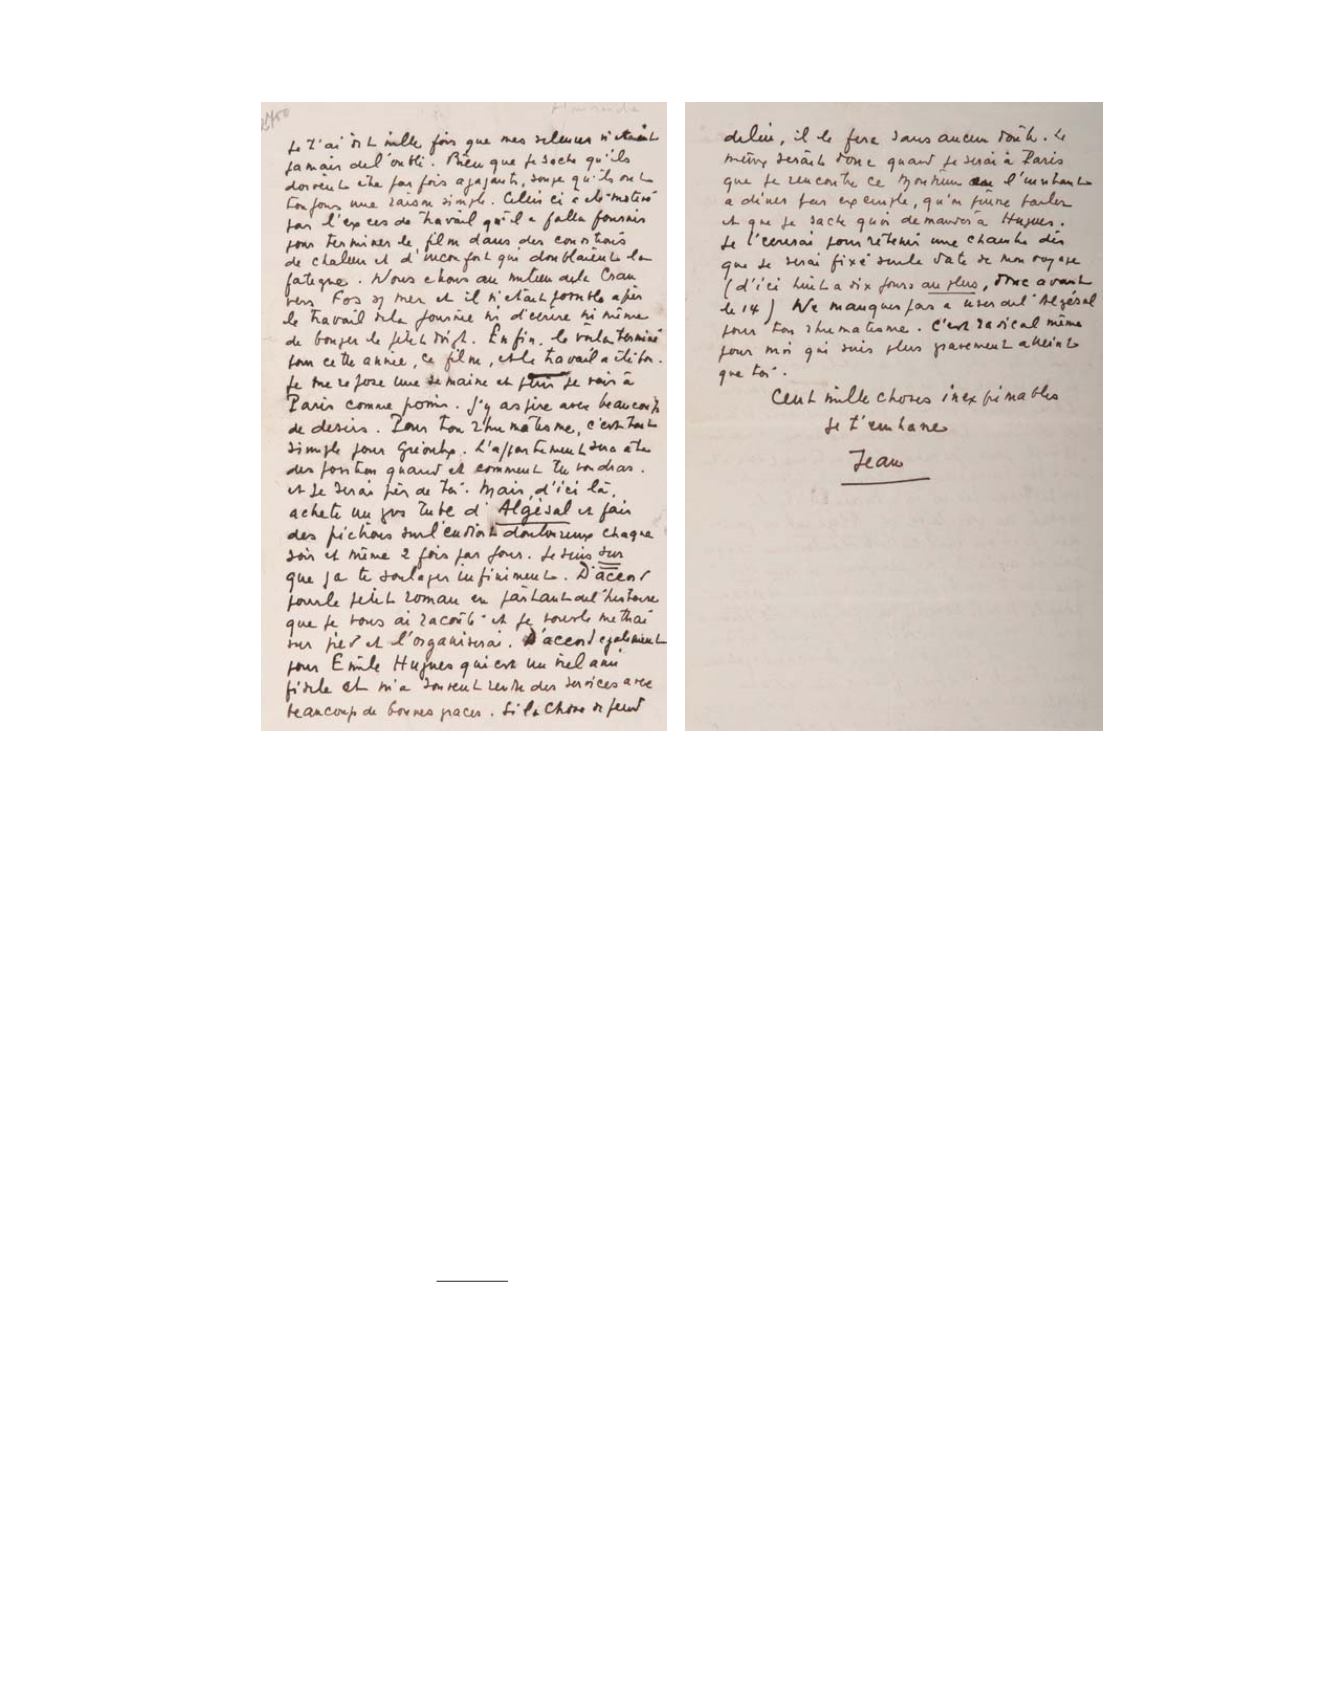 Je t'ai dit mille fois que mes silences n'étaient
jamais de l'oubli. Bien que je sache qu'ils
doivent etre par fois agaçants, songe qu'ils ont
toujours une raison simple. Celui ci a été motivé
par l'exces de travail qu'il a fallu fournir
pour terminer le film dans des conditions
de chaleur et d'inconfort qui doublaient la
fatigue. Nous etions au milieu de la Crau
vers Fos s/ mer et il n'etait possible après
le travail de la journée ni d'écrire ni même
de bouger le petit doigt. Enfin, le voila terminé
pour cette année, ce film, et le travail a été bon.
Je me repose une semaine et puis je vais à
Paris comme promis. J'y aspire avec beaucoup
de desirs. Pour ton rhumatisme, c'est tout
simple pour Gréoulx. L'appartement sera à ta
disposition quand et comment tu voudras.
et je serai près de toi. Mais, d'ici là,
achete un gros tube d'Algésal et fais
des frictions sur l'endroit douloureux chaque
soir et même 2 fois par jour. Je suis sur
que ça te soulagera infiniment. D'accord
pour le petit roman en partant de l'histoire
que je vous ai raconté et je vous le mettrai
sur pied et l'organiserai. D'accord egalement
pour Emile Hugues qui est un viel ami
fidele et m'a souvent rendu des services avec
beaucoup de bonnes graces. Si la chose depend
de lui, il le fera sans aucun doute. Le
mieux serait donc quand je serai à Paris
que je rencontre ce Monsieur en l'invitant
a diner par exemple, qu'on puisse parler
et que je sache quoi demander à Hugues.
Je t'ecrirai pour retenir une chambre dès
que je serai fixé sur la date de mon voyage
(d'ici huit a dix jours au plus, donc avant
le 14) Ne manque pas a user de l'Algésal
pour ton rhumatisme. C'est radical même
pour moi qui suis plus gravement atteint
que toi.
Cent mille choses inexprimables
Je t'embrasse
Jean